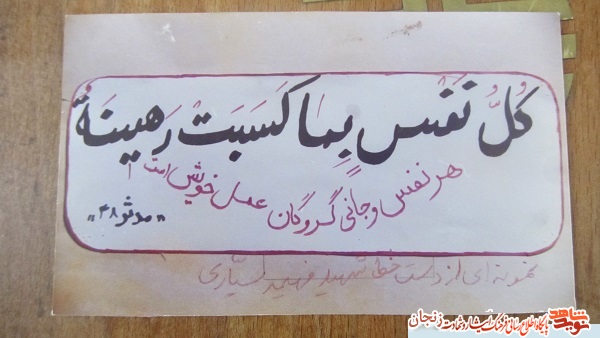 كُلُّ نَفْسٍ بِما كَسَبَتْ رَهینَةٌ
هر نفس و جانی گروگان عمل خویش است
«مدثر ۳۸»
نمونه ای از دست خط شهید فهیمه سیاری
نوید شاهد پایگاه اطلاع رسانی فرهنگ ایثار و شهادت زنجان